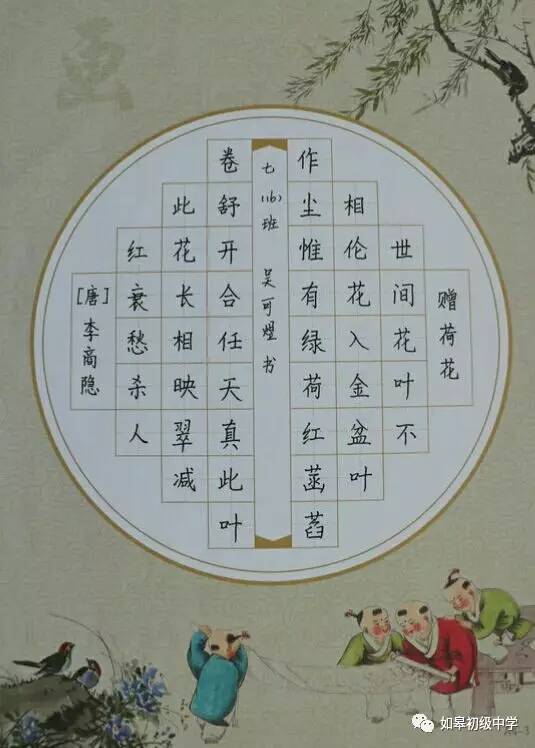 赠荷花
世间花叶不
相伦花入金盆叶
作尘惟有绿荷红菡萏
七(16)班 吴可煜 书
卷舒开合任天真此叶
此花长相映翠减
红衰愁杀人
[唐]李商隐
如皋初级中学